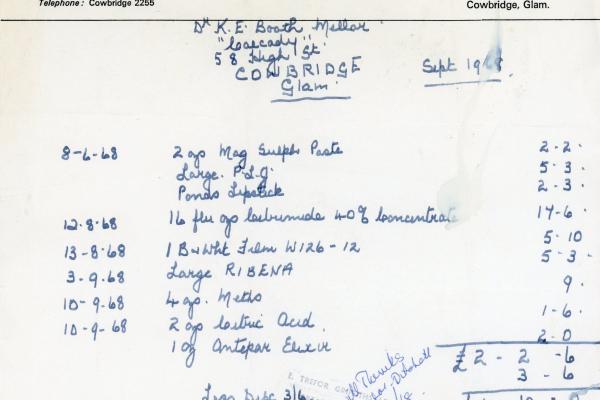 Telephone: Cowbridge 2255
Cowbridge, Glam.
Dr K. E. Booth Mellor
58 High St.
COWBRIDGE
Glam.
Sept 1968.
8-6-68 2 ozs Mag Sulph Paste 2-2.
Large. P.L.J. 5 3.
Ponds Lipstick 2-3.
12.8-68 16 flu ozs Cetrimide 40% Concentrate 17-6.
13-8-68 1 B+Wht Film W126-12 5-10
3-9.68 Large RIBENA 5-3.
10-9.68 4 ozs. Meths 9.
10-9-68 2 ozs Citric Acid. 1-6.
1 oz Antepar Elixir 2-0
£2-2-6
Less Disc 3/6 3-6
Thanks
E. TREFOR